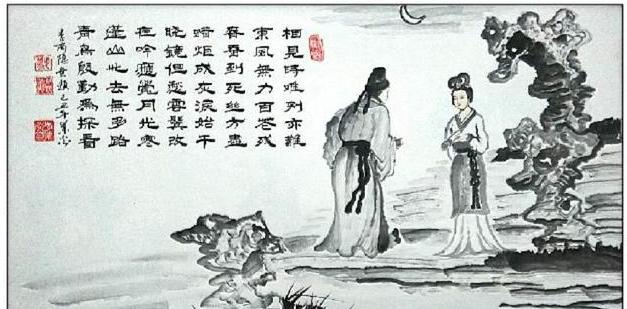 相見時難別亦難
東風無力百花殘
春蠶到死絲方盡
蠟炬成灰淚始干
曉鏡但愁雲鬢改
夜吟應覺月光寒
蓬山此去無多路
青鳥殷勤為探看
李商隱無題己丑年